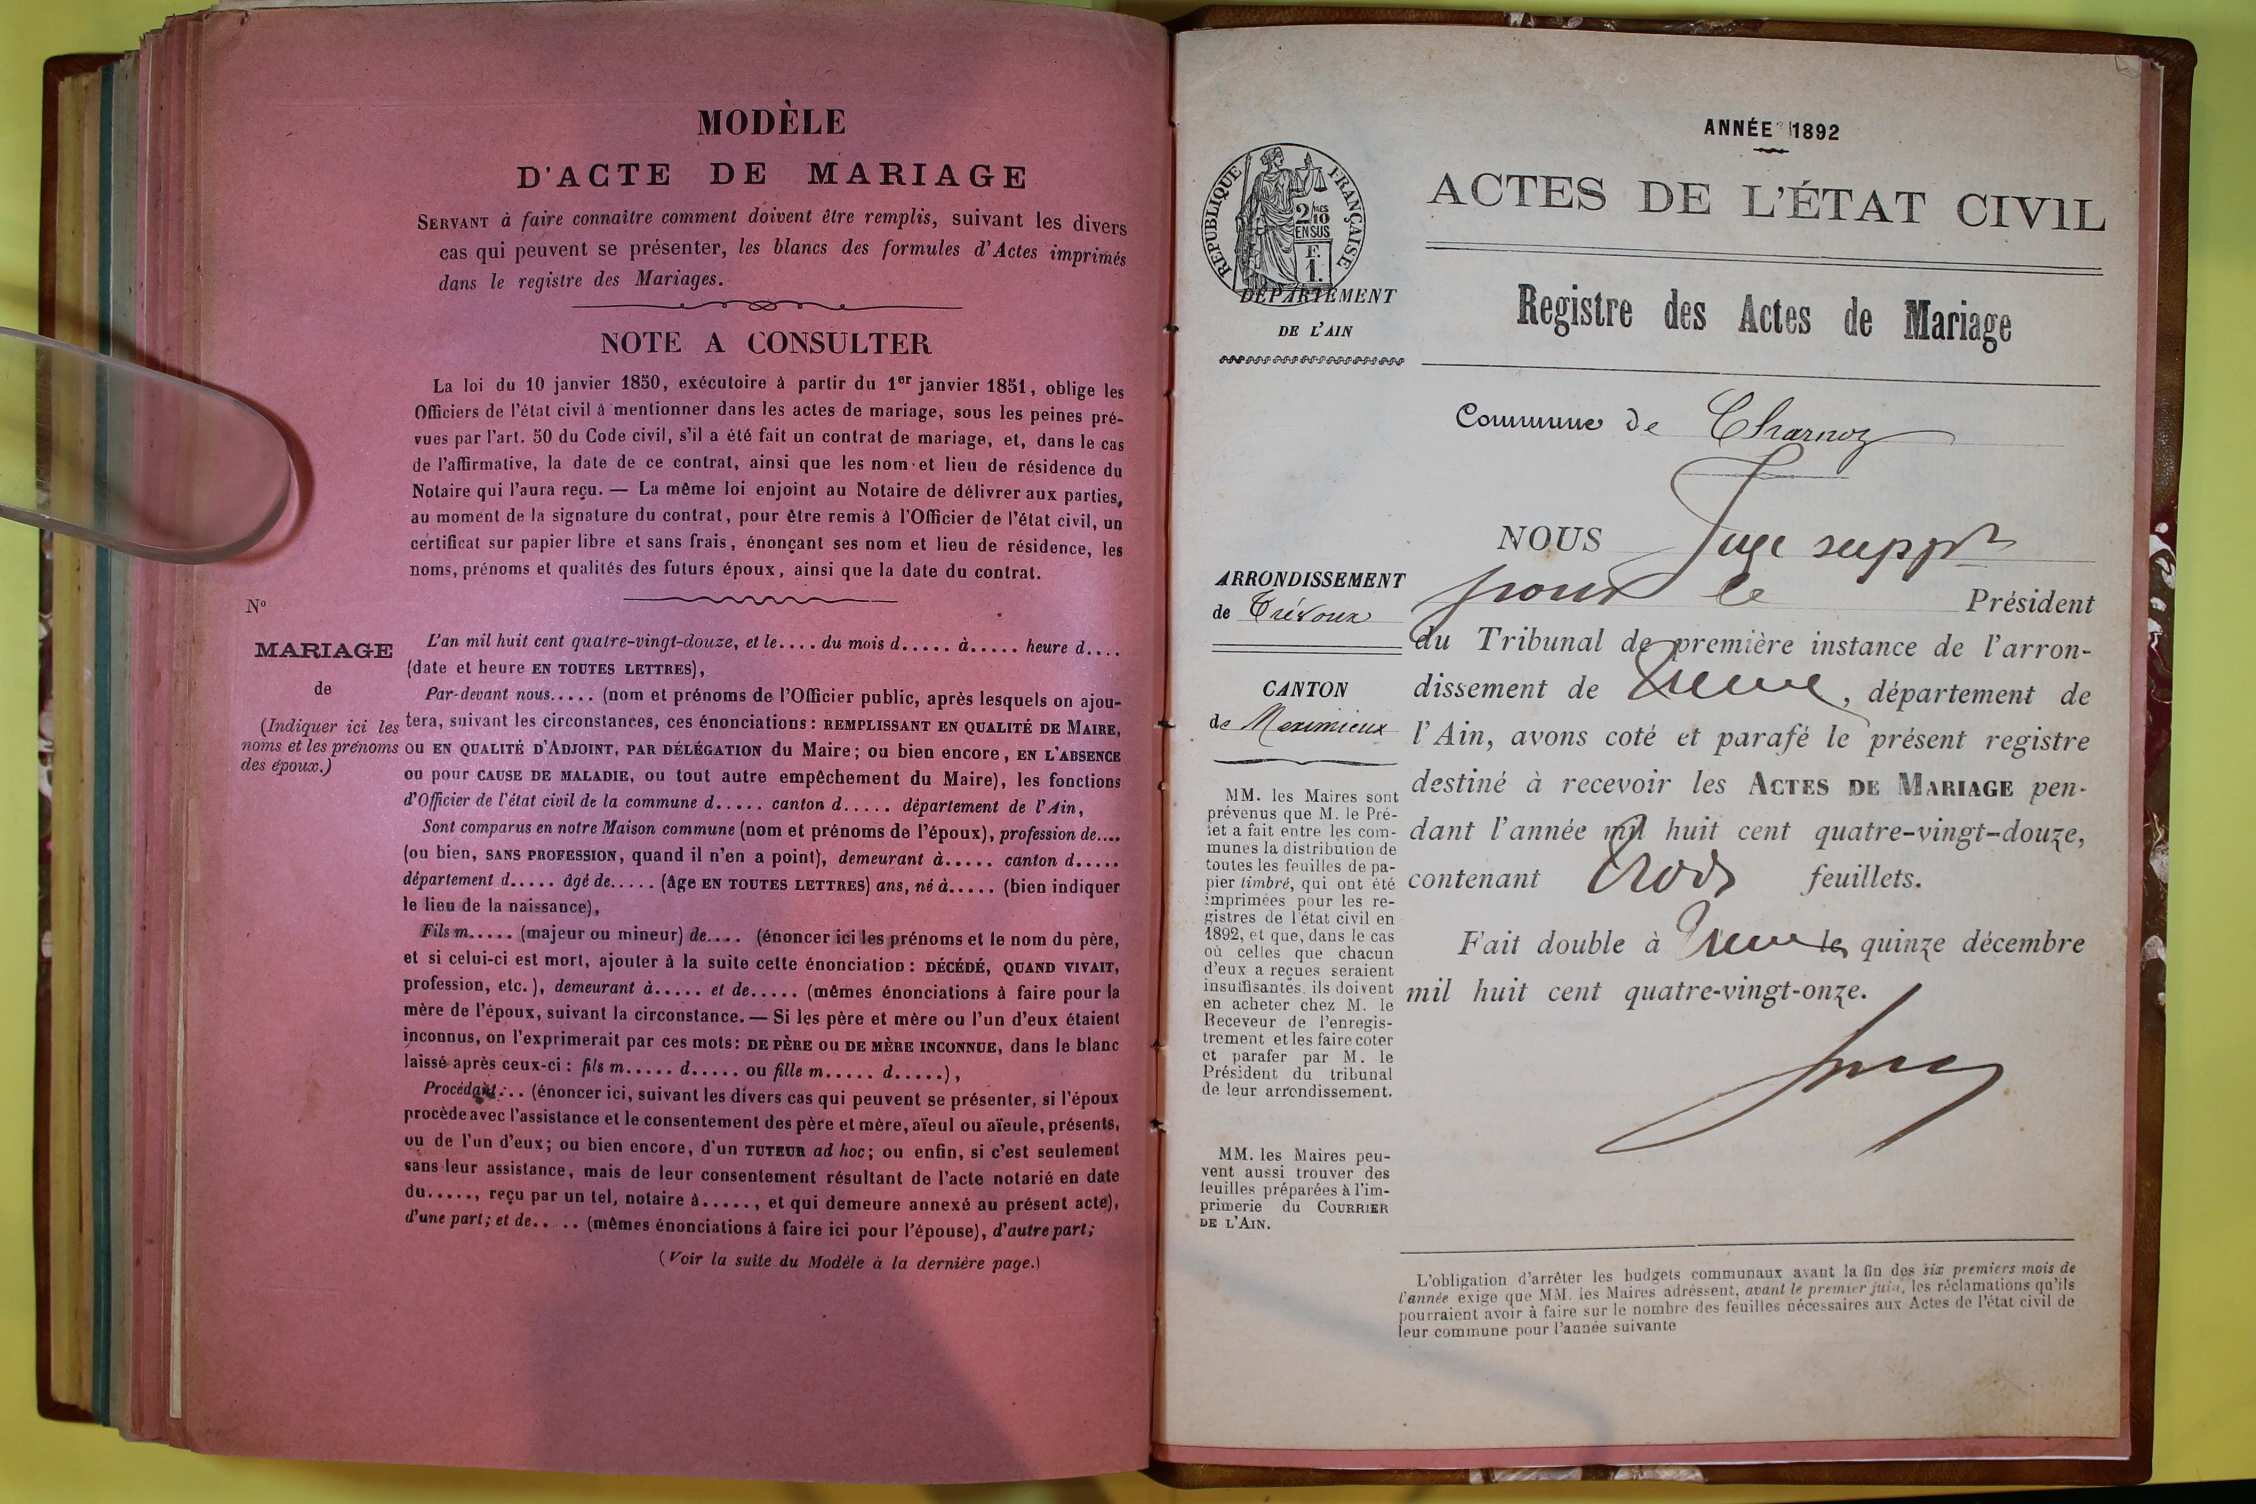 MODÈLE
D'ACTE DE MARIAGE
SERVANT à faire connaître comment doivent être remplis, suivant les divers
cas qui peuvent se présenter, les blancs des formules d'Actes imprimés
dans le registre des Mariages.
NOTE A CONSULTER
La loi du 10 janvier 1850, exécutoire à partir du 1er janvier 1851, oblige les
Officiers de l'état civil à mentionner dans les actes de mariage, sous les peines pré-
vues par l'art. 50 du Code civil, s'il a été fait un contrat de mariage, et, dans le cas
de l'affirmative, la date de ce contrat, ainsi que les nom et lieu de résidence du
Notaire qui l'aura reçu. — La même loi enjoint au Notaire de délivrer aux parties,
au moment de la signature du contrat, pour être remis à l'Officier de l'état civil, un
certificat sur papier libre et sans frais, énonçant ses nom et lieu de résidence, les
noms, prénoms et qualités des futurs époux, ainsi que la date du contrat.
No
MARIAGE
de
(Indiquer ici les
noms et les prénoms
des époux.)
L'an mil huit cent quatre-vingt-douze, et le.... du mois d..... à..... heure d....
(date et heure EN TOUTES LETTRES),
Par-devant nous..... (nom et prénoms de l'Officier public, après lesquels on ajou-
tera, suivant les circonstances, ces énonciations: REMPLISSANT EN QUALITÉ DE MAIRE,
ou EN QUALITÉ D'ADJOINT, PAR DÉLÉGATION du Maire; ou bien encore, EN L'ABSENCE
ou pour CAUSE DE MALADIE, ou tout autre empêchement du Maire), les fonctions
d'Officier de l'état civil de la commune d..... canton d..... département de l'Ain,
Sont comparus en notre Maison commune (nom et prénoms de l'époux), profession de....
(ou bien, SANS PROFESSION, quand il n'en a point), demeurant à..... canton d.....
département d..... âgé de..... (âge EN TOUTES LETTRES) ans, né à..... (bien indiquer
le lieu de la naissance),
Fils m..... (majeur ou mineur) de.... (énoncer ici les prénoms et le nom du père,
et si celui-ci est mort, ajouter à la suite cette énonciation: DÉCÉDÉ, QUAND VIVAIT,
profession, etc.), demeurant à..... et de..... (mêmes énonciations à faire pour la
mère de l'époux, suivant la circonstance. — Si les père et mère ou l'un d'eux étaient
inconnus, on l'exprimerait par ces mots: DE PÈRE ou DE MÈRE INCONNUE, dans le blanc
laissé après ceux-ci: fils m..... d..... ou fille m..... d.....),
Procédant... (énoncer ici, suivant les divers cas qui peuvent se présenter, si l'époux
procède avec l'assistance et le consentement des père et mère, aïeul ou aïeule, présents,
ou de l'un d'eux; ou bien encore, d'un TUTEUR ad hoc; ou enfin, si c'est seulement
sans leur assistance, mais de leur consentement résultant de l'acte notarié en date
du....., reçu par un tel, notaire à....., et qui demeure annexé au présent acte),
d'une part; et de.. .. (mêmes énonciations à faire ici pour l'épouse), d'autre part;
(Voir la suite du Modèle à la dernière page.)
ANNÉE 1892
RÉPUBLIQUE FRANÇAISE
2/10 EN SUS
F. 1.
DÉPARTEMENT
DE L'AIN
ACTES DE L'ÉTAT CIVIL
Registre des Actes de Mariage
Commune de Charnoz
ARRONDISSEMENT
de Trévoux
CANTON
de Meximieux
MM. les Maires sont
prévenus que M. le Pré-
fet a fait entre les com-
munes la distribution de
toutes les feuilles de pa-
pier timbré, qui ont été
imprimées pour les re-
gistres de l'état civil en
1892, et que, dans le cas
où celles que chacun
d'eux a reçues seraient
insuffisantes, ils doivent
en acheter chez M. le
Receveur de l'enregis-
trement et les faire coter
et parafer par M. le
Président du tribunal
de leur arrondissement.
MM. les Maires peu-
vent aussi trouver des
feuilles préparées à l'im-
primerie du COURRIER
DE L'AIN.
NOUS Juge suppt
pour le Président
du Tribunal de première instance de l'arron-
dissement de Trévoux, département de
l'Ain, avons coté et parafé le présent registre
destiné à recevoir les ACTES DE MARIAGE pen-
dant l'année mil huit cent quatre-vingt-douze,
contenant trois feuillets.
Fait double à Trévoux le quinze décembre
mil huit cent quatre-vingt-onze.
L'obligation d'arrêter les budgets communaux avant la fin des six premiers mois de
l'année exige que MM. les Maires adressent, avant le premier juin, les réclamations qu'ils
pourraient avoir à faire sur le nombre des feuilles nécessaires aux Actes de l'état civil de
leur commune pour l'année suivante